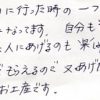 に行った時の一つ
なってます。自分も
人にあげるのも楽
でもらえるので又あげた
お土産です。